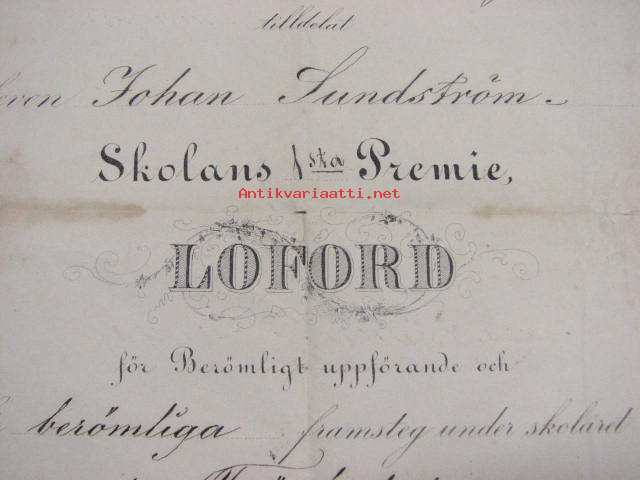 tilldelat
Johan Sundström
Skolans 1sta Premie,
Antikvariaatti.net
LOFORD
för Berömligt uppförande och
berömliga framsteg under skolåret